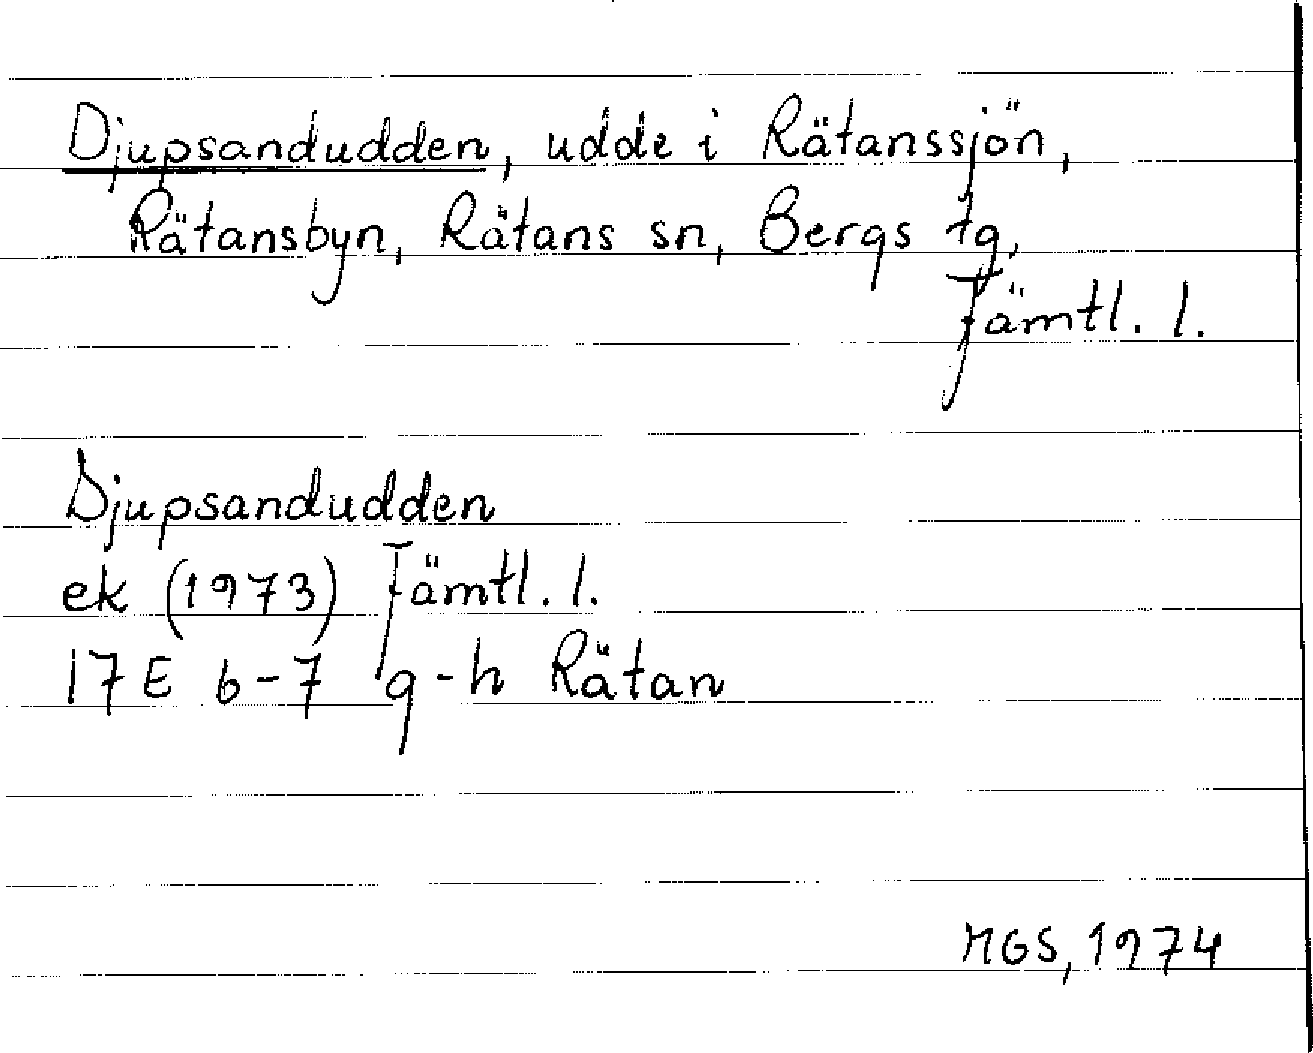 Djupsandudden, udde i Rätanssjön,
Rätansbyn, Rätans sn, Bergs tg,
Jämtl. l.
Djupsandudden
ek (1973) Jämtl. l.
17E 6-7 g-h Rätan
MGS, 1974